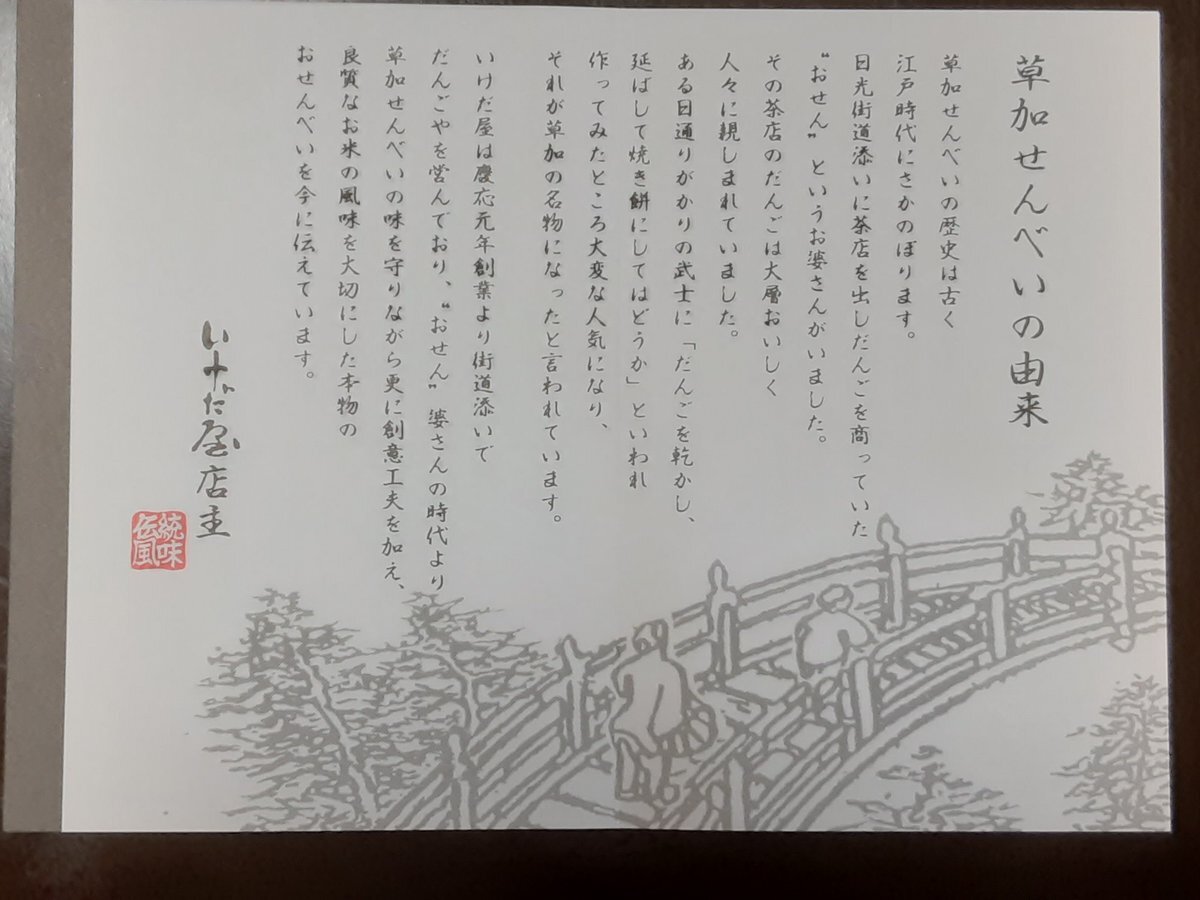 草加せんべいの由来
草加せんべいの歴史は古く
江戸時代にさかのぼります。
日光街道添いに茶店を出しだんごを商っていた
“おせん” というお婆さんがいました。
その茶店のだんごは大層おいしく
人々に親しまれていました。
ある日通りがかりの武士に「だんごを乾かし、
延ばして焼き餅にしてはどうか」といわれ
作ってみたところ大変な人気になり、
それが草加の名物になったと言われています。
いけだ屋は慶応元年創業より街道添いで
だんごやを営んでおり、“おせん” 婆さんの時代より
草加せんべいの味を守りながら更に創意工夫を加え、
良質なお米の風味を大切にした本物の
おせんべいを今に伝えています。
いけだ屋店主
伝統風味